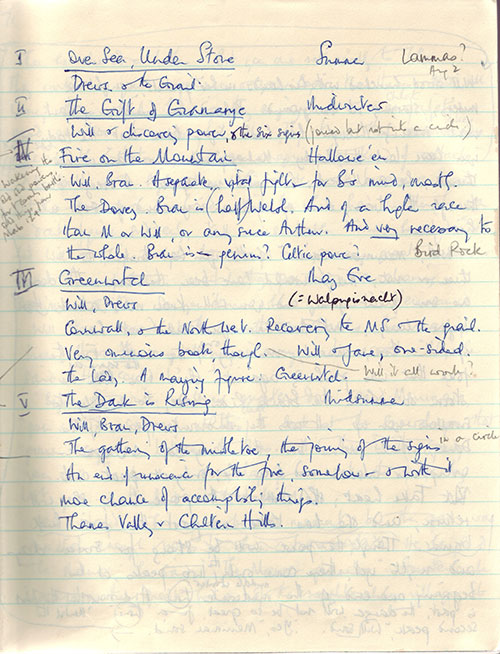 I Over Sea, Under Stone Summer Lammas?
Aug 2
Drews & the Grail.
II The Gift of Gramarye Midwinter
Will & discovers power, & the six signs (joined but not into a circle)
IV Fire on the Mountain Hallowe'en
Will. Bran. A separate, fight for B's mind, mostly.
The Dovey. Bran is (half) Welsh. And of a high race
than M or Will, or any since Arthur. And very necessary to
the whole. Bran is – ? Celtic power? Bird Rock
III Greenwitch May Eve
Will, Drews (= Walpurgisnacht)
Cornwall, & the North Wet. Recovering the MS – the grail.
Very ominous book, though. Will & Jane, one-sided.
the Lady. A figure. Greenwitch. Will it all work?
V The Dark is Rising Midsummer
Will, Bran, Drews
The gathering of the mistletoe, the joining of the signs in a circle
An end of innocence for the five, somehow – & with it
more chance of accomplishing things.
Thames Valley & Chiltern Hills.